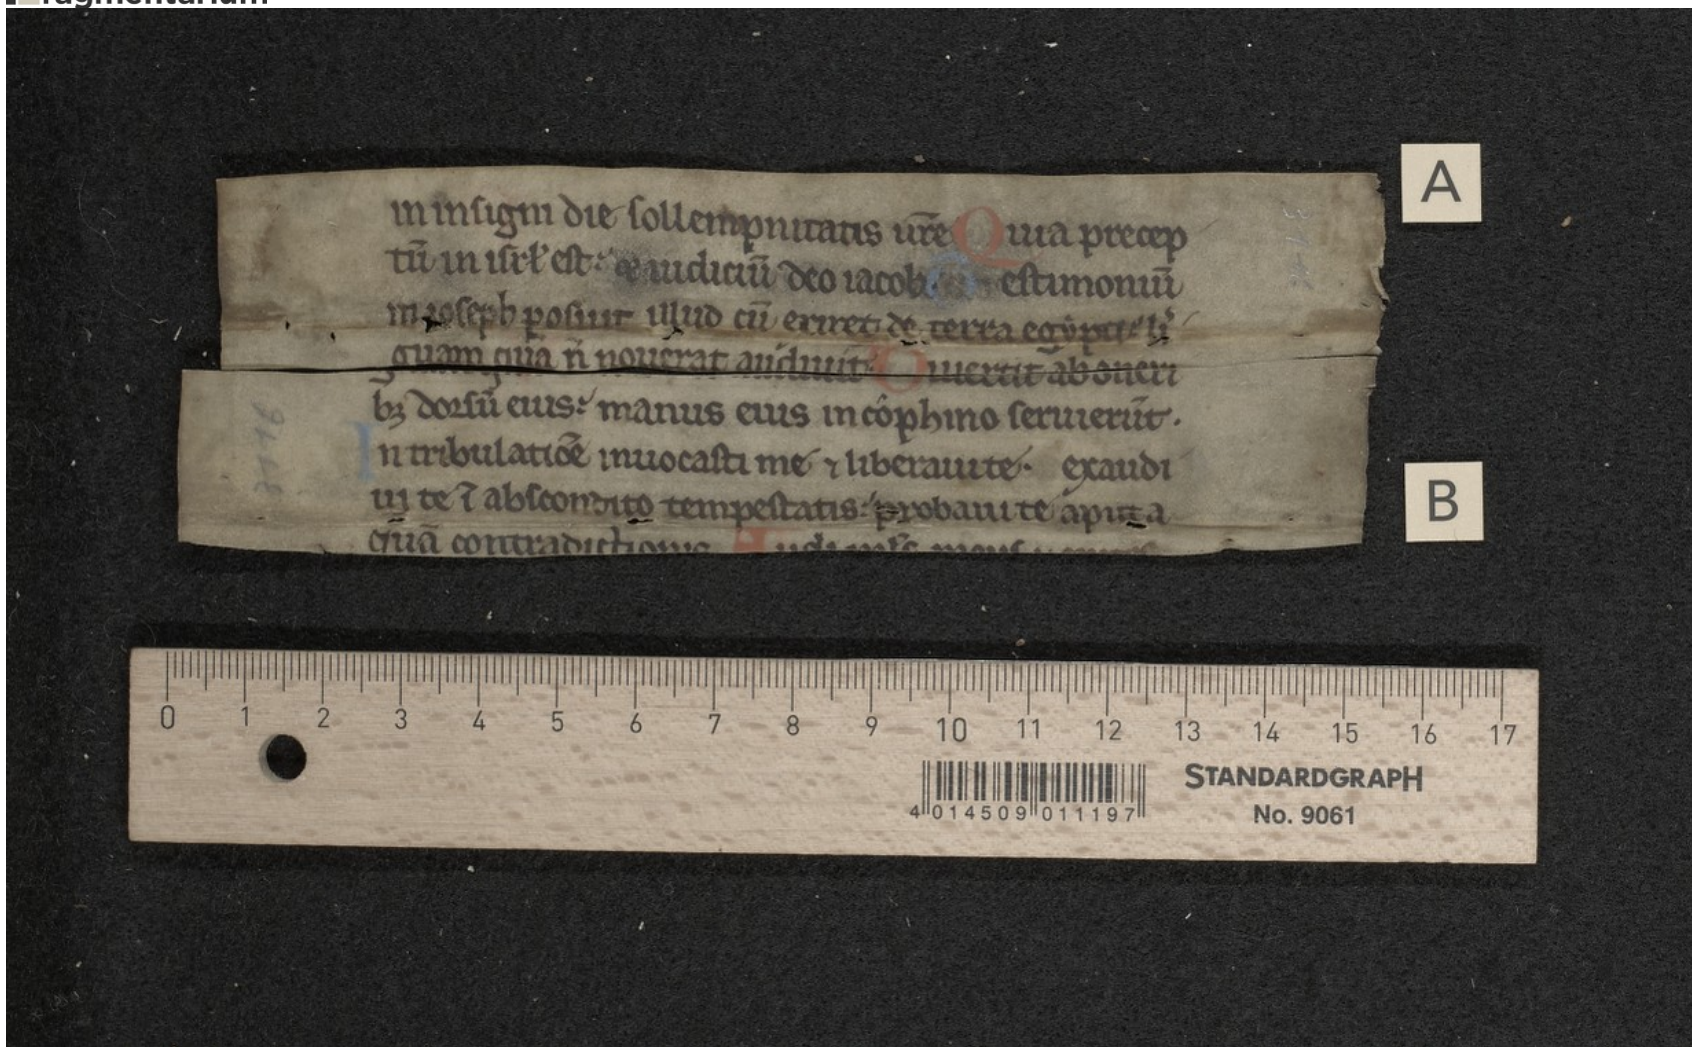 fragmentarium
in insigni die sollempnitatis ur̄e Quia precep
tū in isrł est: & iudiciū deo iacob Testimoniū
in ioseph posuit illud cū exiret de terra egypti: li
guam quā n̄ nouerat audiuit: Diuertit ab oneri
bꝫ dorsū eius: manus eius in cophino seruierūt.
In tribulatiōe inuocasti me ⁊ liberaui te. exaudi
ui te ī abscondito tempestatis: probaui te aput a
quā contradictionis
A
B
0 1 2 3 4 5 6 7 8 9 10 11 12 13 14 15 16 17
4 014509 011197
STANDARDGRAPH
No. 9061